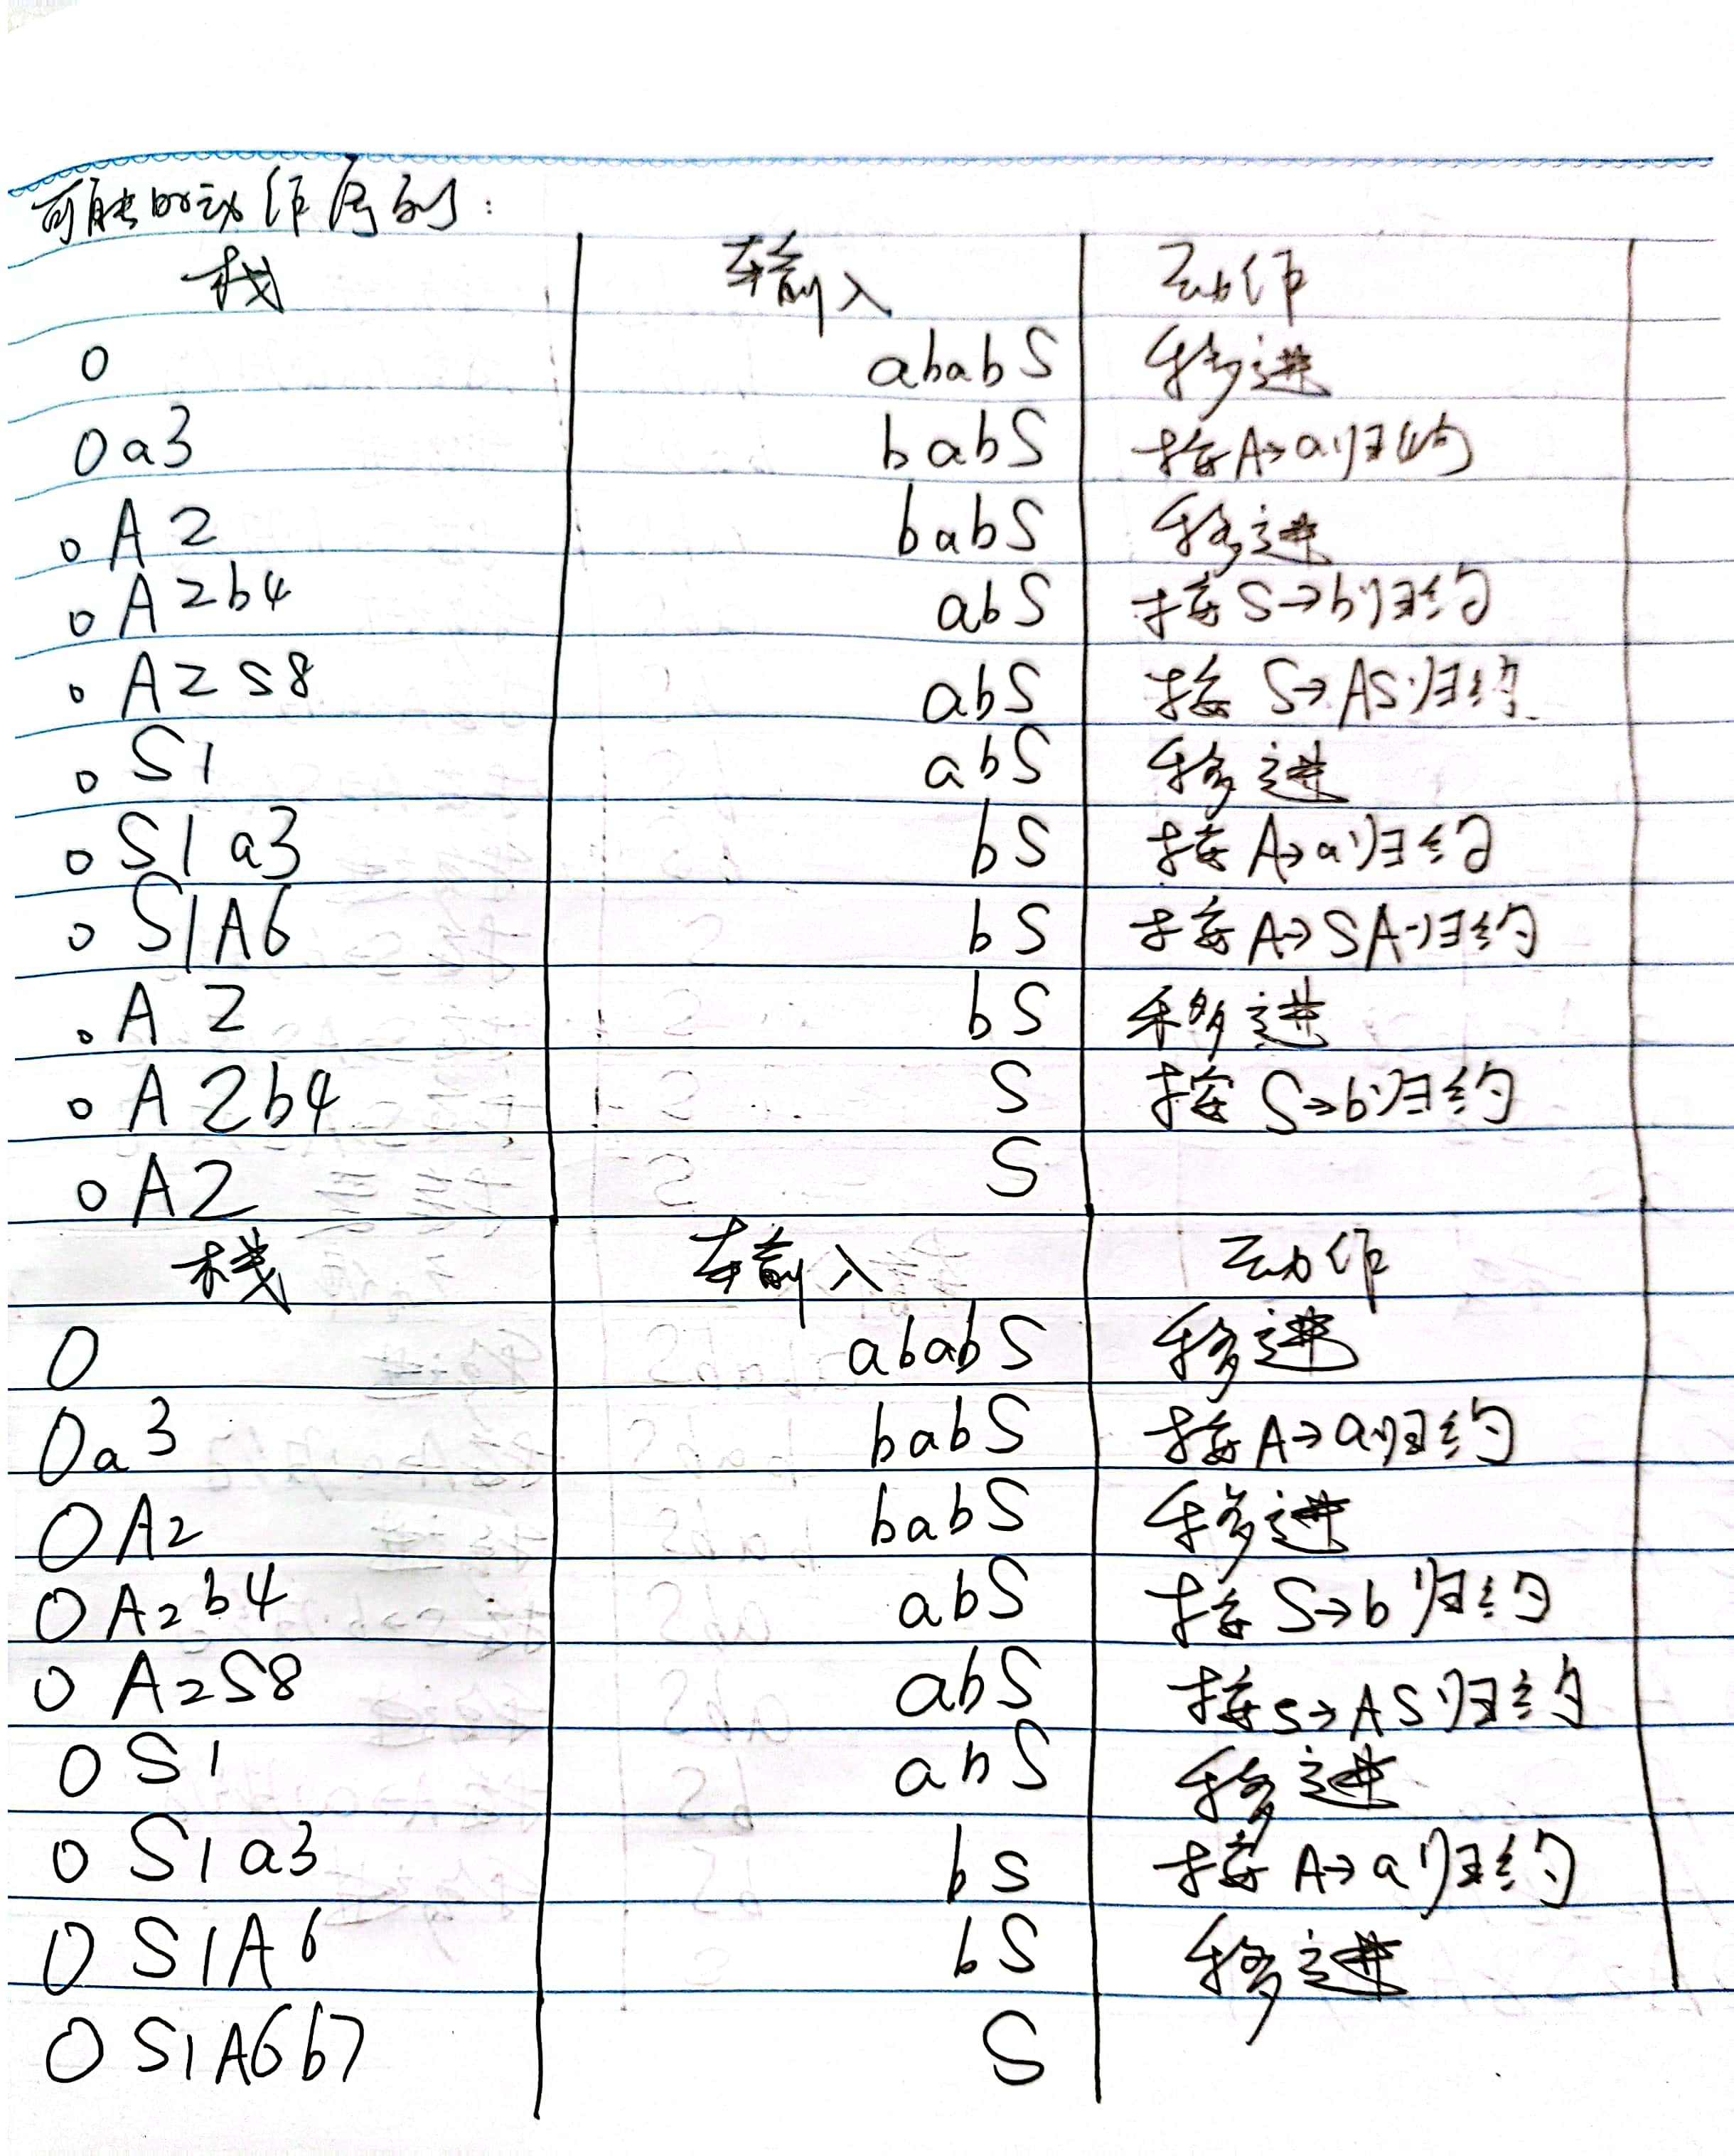 可能的动作序列:
栈 输入 动作
0 ababS 移进
0a3 babS 按A→a归约
0A2 babS 移进
0A2b4 abS 按S→b归约
0A2S8 abS 按S→AS归约
0S1 abS 移进
0S1a3 bS 按A→a归约
0S1A6 bS 按A→SA归约
0A2 bS 移进
0A2b4 S 按S→b归约
0A2 S
栈 输入 动作
0 ababS 移进
0a3 babS 按A→a归约
0A2 babS 移进
0A2b4 abS 按S→b归约
0A2S8 abS 按S→AS归约
0S1 abS 移进
0S1a3 bS 按A→a归约
0S1A6 bS 移进
0S1A6b7 S